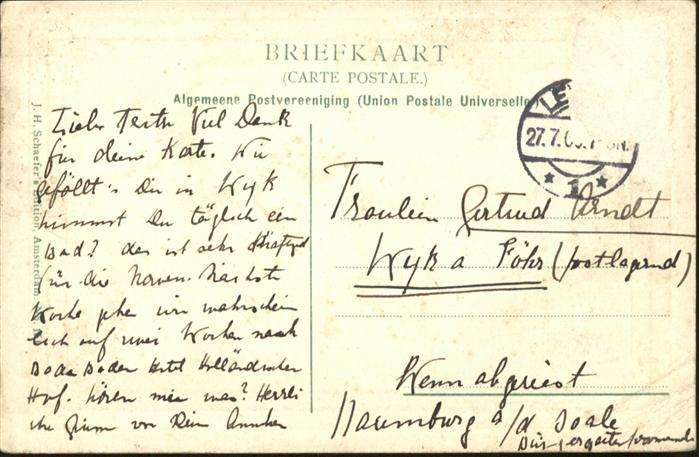 BRIEFKAART
(CARTE POSTALE.)
Algemeene Postvereeniging (Union Postale Universelle)
J. H. Schaefer's Edition, Amsterdam
27.7.0
* 1 *
Viel Dank
für deine Karte. Wie
gefällt's Dir in Wyk
nimmst Du täglich ein
Bad? das ist sehr
für die Nerven. Nächste
Woche gehen wir wahrschein
lich auf zwei Wochen nach
Baden Baden Hotel Holländischer
Hof. hören wir was? Herzli
che Grüsse von Dein
Fräulein Gertrud Arndt
Wyk a Föhr (postlagernd)
Wenn abgereist
Naumburg a/d Saale